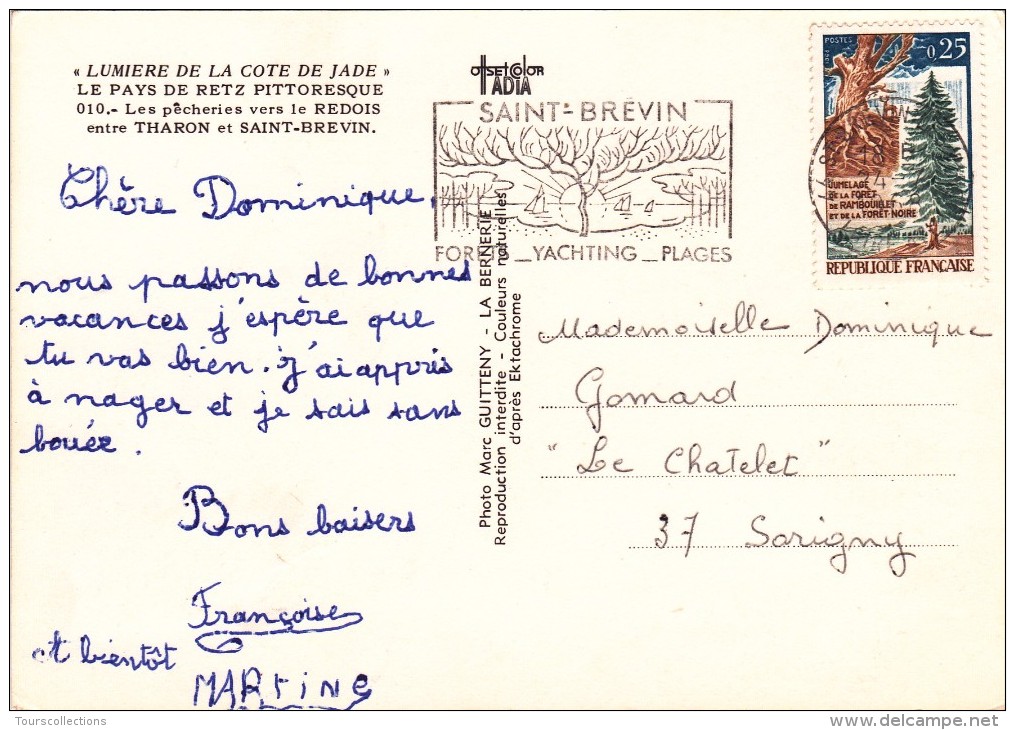 « LUMIERE DE LA COTE DE JADE »
LE PAYS DE RETZ PITTORESQUE
010.- Les pêcheries vers le REDOIS
entre THARON et SAINT-BREVIN.
Chère Dominique,
nous passons de bonnes
vacances j'espère que
tu vas bien. j'ai appris
à nager et je sais sans
bouée.
Bons baisers
Françoise
et bientôt
MARtine
OffsetColor
ADIA
SAINT-BRÉVIN
FORETS_YACHTING_PLAGES
Photo Marc GUITTENY - LA BERNERIE
Reproduction interdite - Couleurs naturelles
d'après Ektachrome
POSTES
0,25
18
24
JUMELAGE
DE LA FORÊT
DE RAMBOUILLET
ET DE LA FORÊT NOIRE
REPUBLIQUE FRANÇAISE
Mademoiselle Dominique
Gomard
"Le Chatelet"
37 Sorigny
Tourscollections
delcampe.net